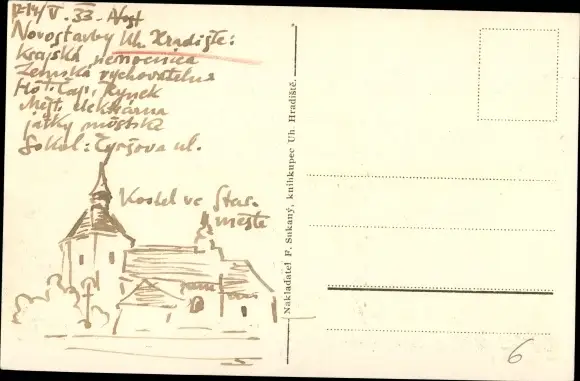 14/V. 33.
Novostavby Uh. Hradiště:
Krajská nemocnice
Zemská vychovatelna
Hot. Čap, Rynek
Měst. elektrárna
jatky městská
Sokol: Tyršova ul.
Kostel ve Star.
městě
Nakladatel F. Sukaný, knihkupec Uh. Hradiště.
6